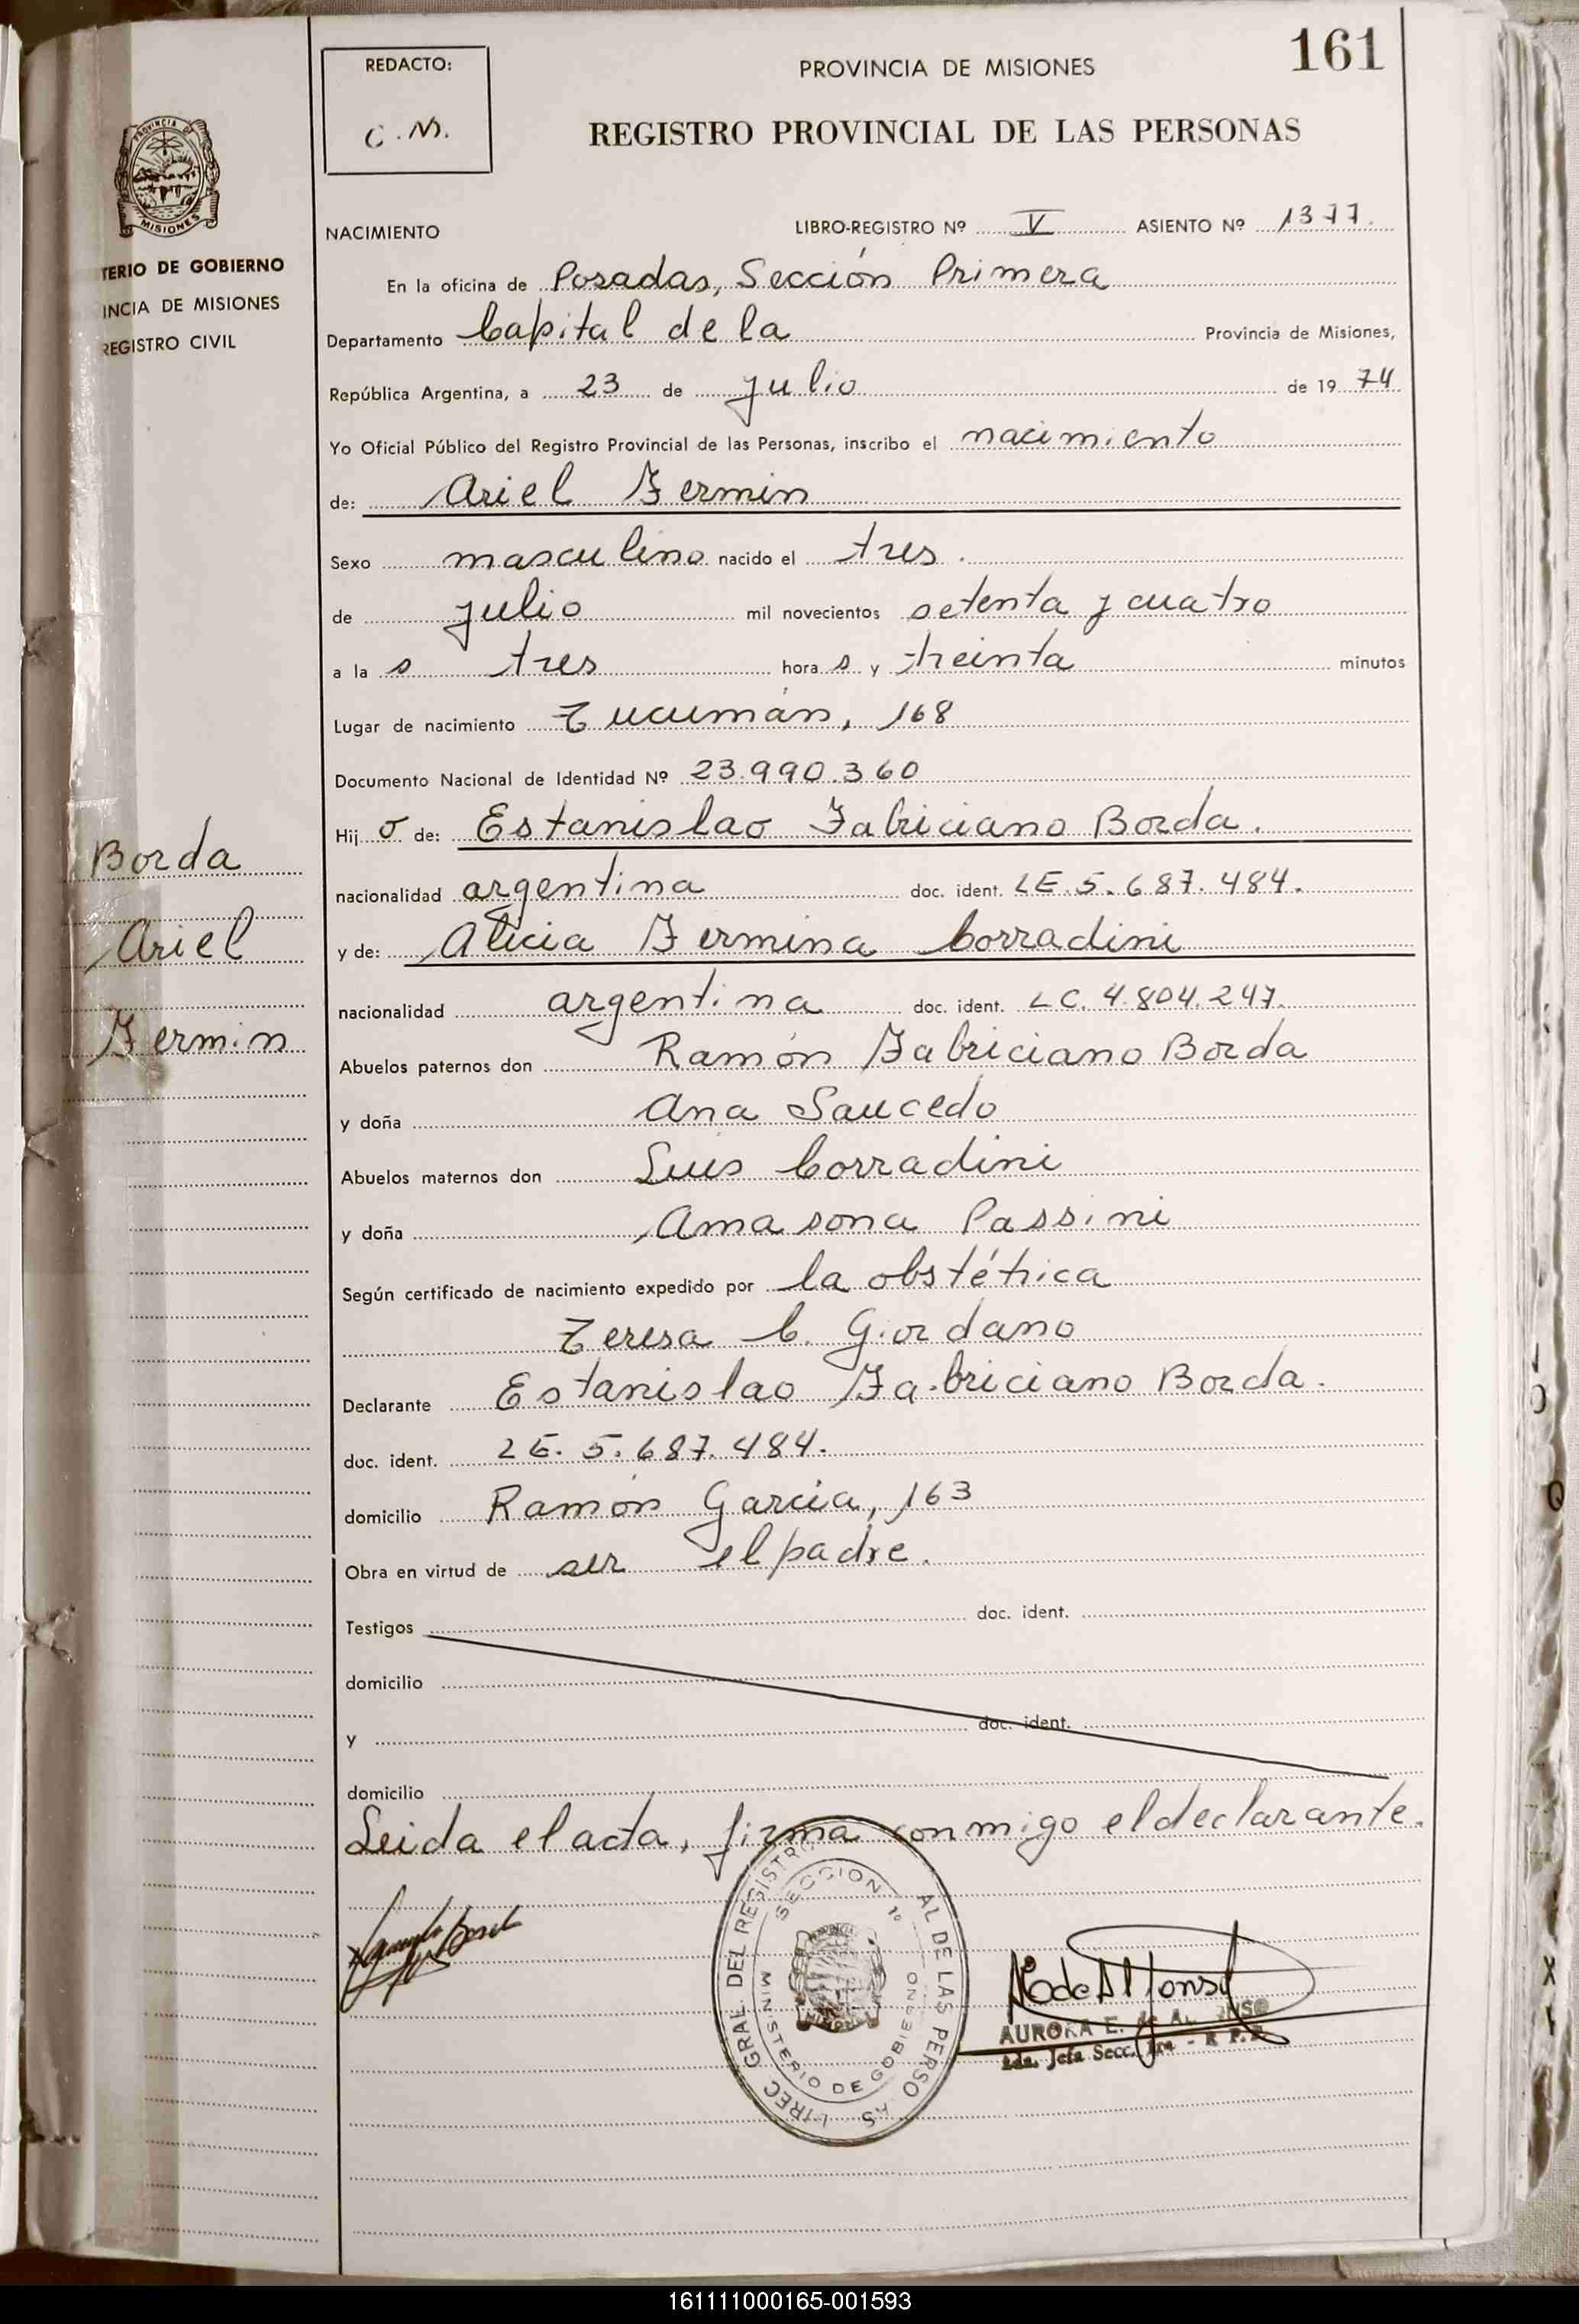 161
REDACTO:
C.M.
PROVINCIA DE MISIONES
REGISTRO PROVINCIAL DE LAS PERSONAS
PROVINCIA DE
MISIONES
TERIO DE GOBIERNO
INCIA DE MISIONES
REGISTRO CIVIL
NACIMIENTO LIBRO-REGISTRO Nº V ASIENTO Nº 1377.
En la oficina de Posadas, Sección Primera
Departamento Capital de la Provincia de Misiones,
República Argentina, a 23 de julio de 19 74
Yo Oficial Público del Registro Provincial de las Personas, inscribo el nacimiento
de: Ariel Fermin
Sexo masculino nacido el tres.
de julio mil novecientos setenta y cuatro
a la s tres hora s y treinta minutos
Lugar de nacimiento Tucumán, 168
Documento Nacional de Identidad Nº 23.990.360
Hij o de: Estanislao Fabriciano Borda.
nacionalidad argentina doc. ident. LE. 5.687.484.
y de: Alicia Fermina Corradini
nacionalidad argentina doc. ident. LC. 4.804.247.
Abuelos paternos don Ramón Fabriciano Borda
y doña Ana Saucedo
Abuelos maternos don Luis Corradini
y doña Amasona Passini
Según certificado de nacimiento expedido por la obstétrica
Teresa C. Giordano
Declarante Estanislao Fabriciano Borda.
doc. ident. LE. 5.687.484.
domicilio Ramón Garcia, 163
Obra en virtud de ser el padre.
Testigos doc. ident.
domicilio
y doc. ident.
domicilio
Leida el acta, firma conmigo el declarante.
Borda
Ariel
Fermin
SECCION 1º
MINISTERIO DE GOBIERNO
GRAL. DEL REGISTRO
AL DE LAS PERSO AS
AURORA E. de
2da. Jefa Secc. 1ra - R. P.
161111000165-001593